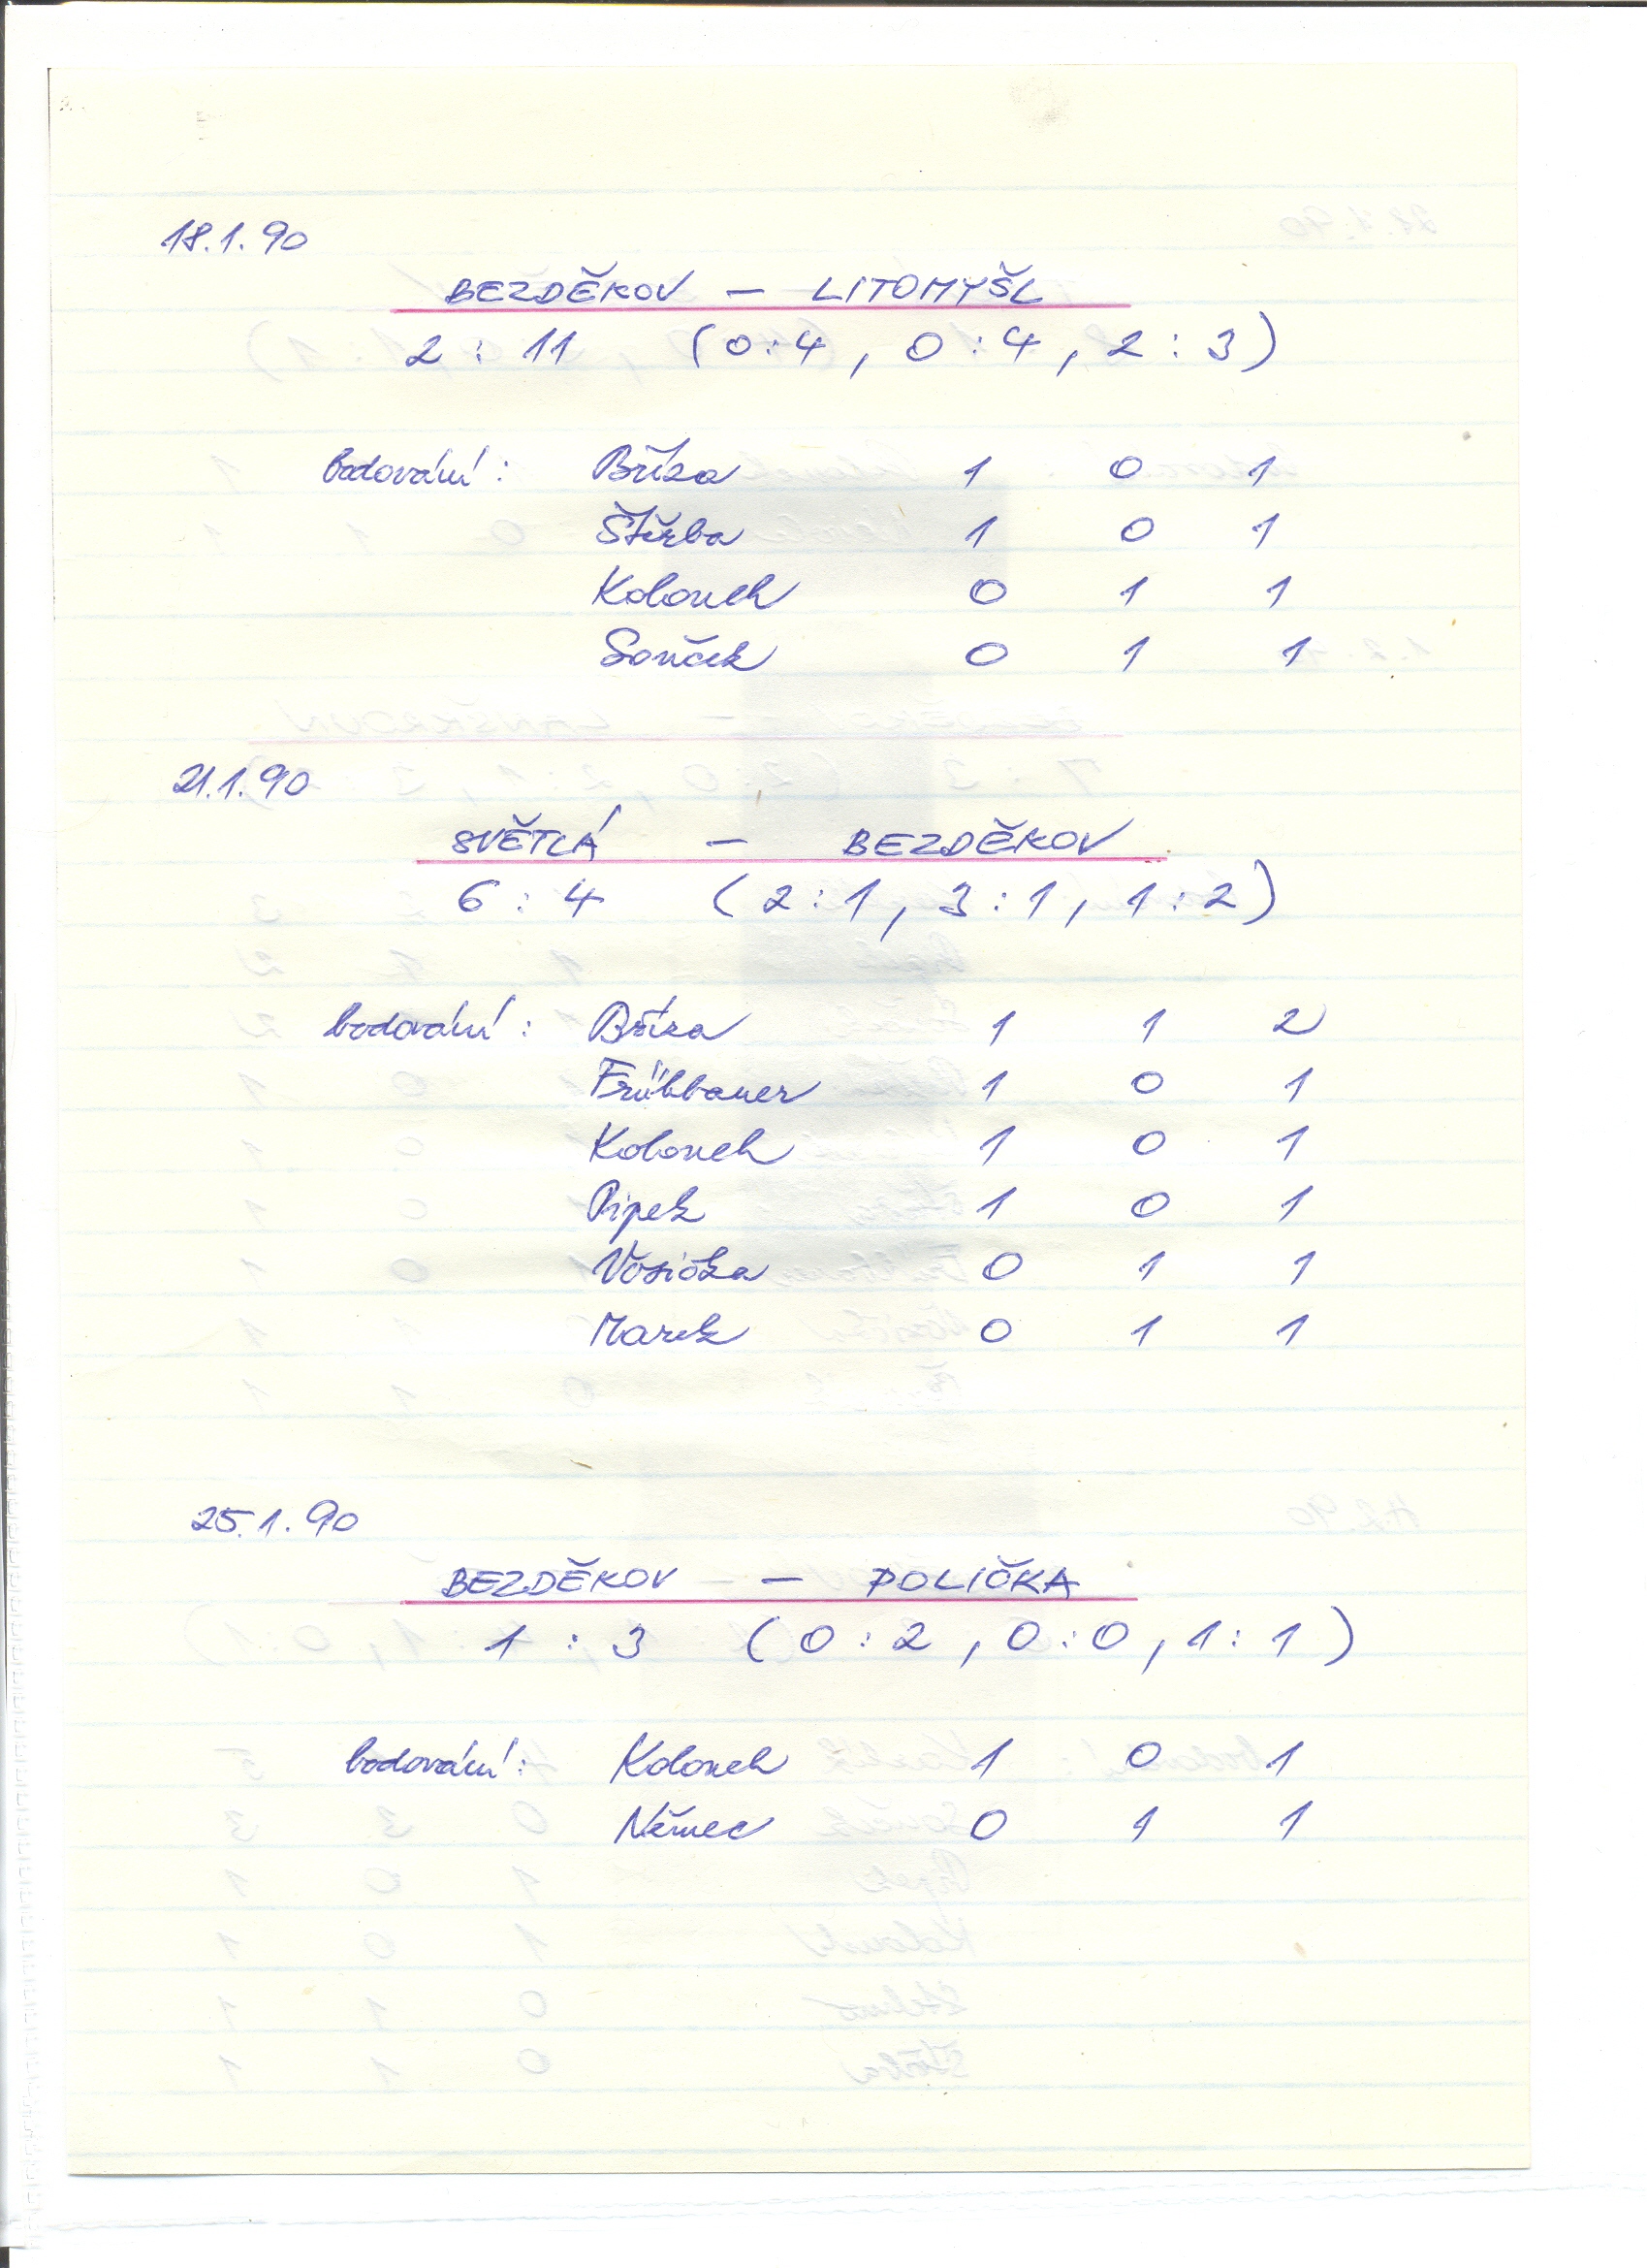 18.1.90
BEZDĚKOV – LITOMYŠL
2 : 11 (0:4, 0:4, 2:3)
bodování: Bříza 1 0 1
Štěrba 1 0 1
Kolouch 0 1 1
Souček 0 1 1
21.1.90
SVĚTLÁ – BEZDĚKOV
6 : 4 (2:1, 3:1, 1:2)
bodování: Bříza 1 1 2
Frühbauer 1 0 1
Kolouch 1 0 1
Pipek 1 0 1
Vosička 0 1 1
Marek 0 1 1
25.1.90
BEZDĚKOV – POLIČKA
1 : 3 (0:2, 0:0, 1:1)
bodování: Kolouch 1 0 1
Němec 0 1 1